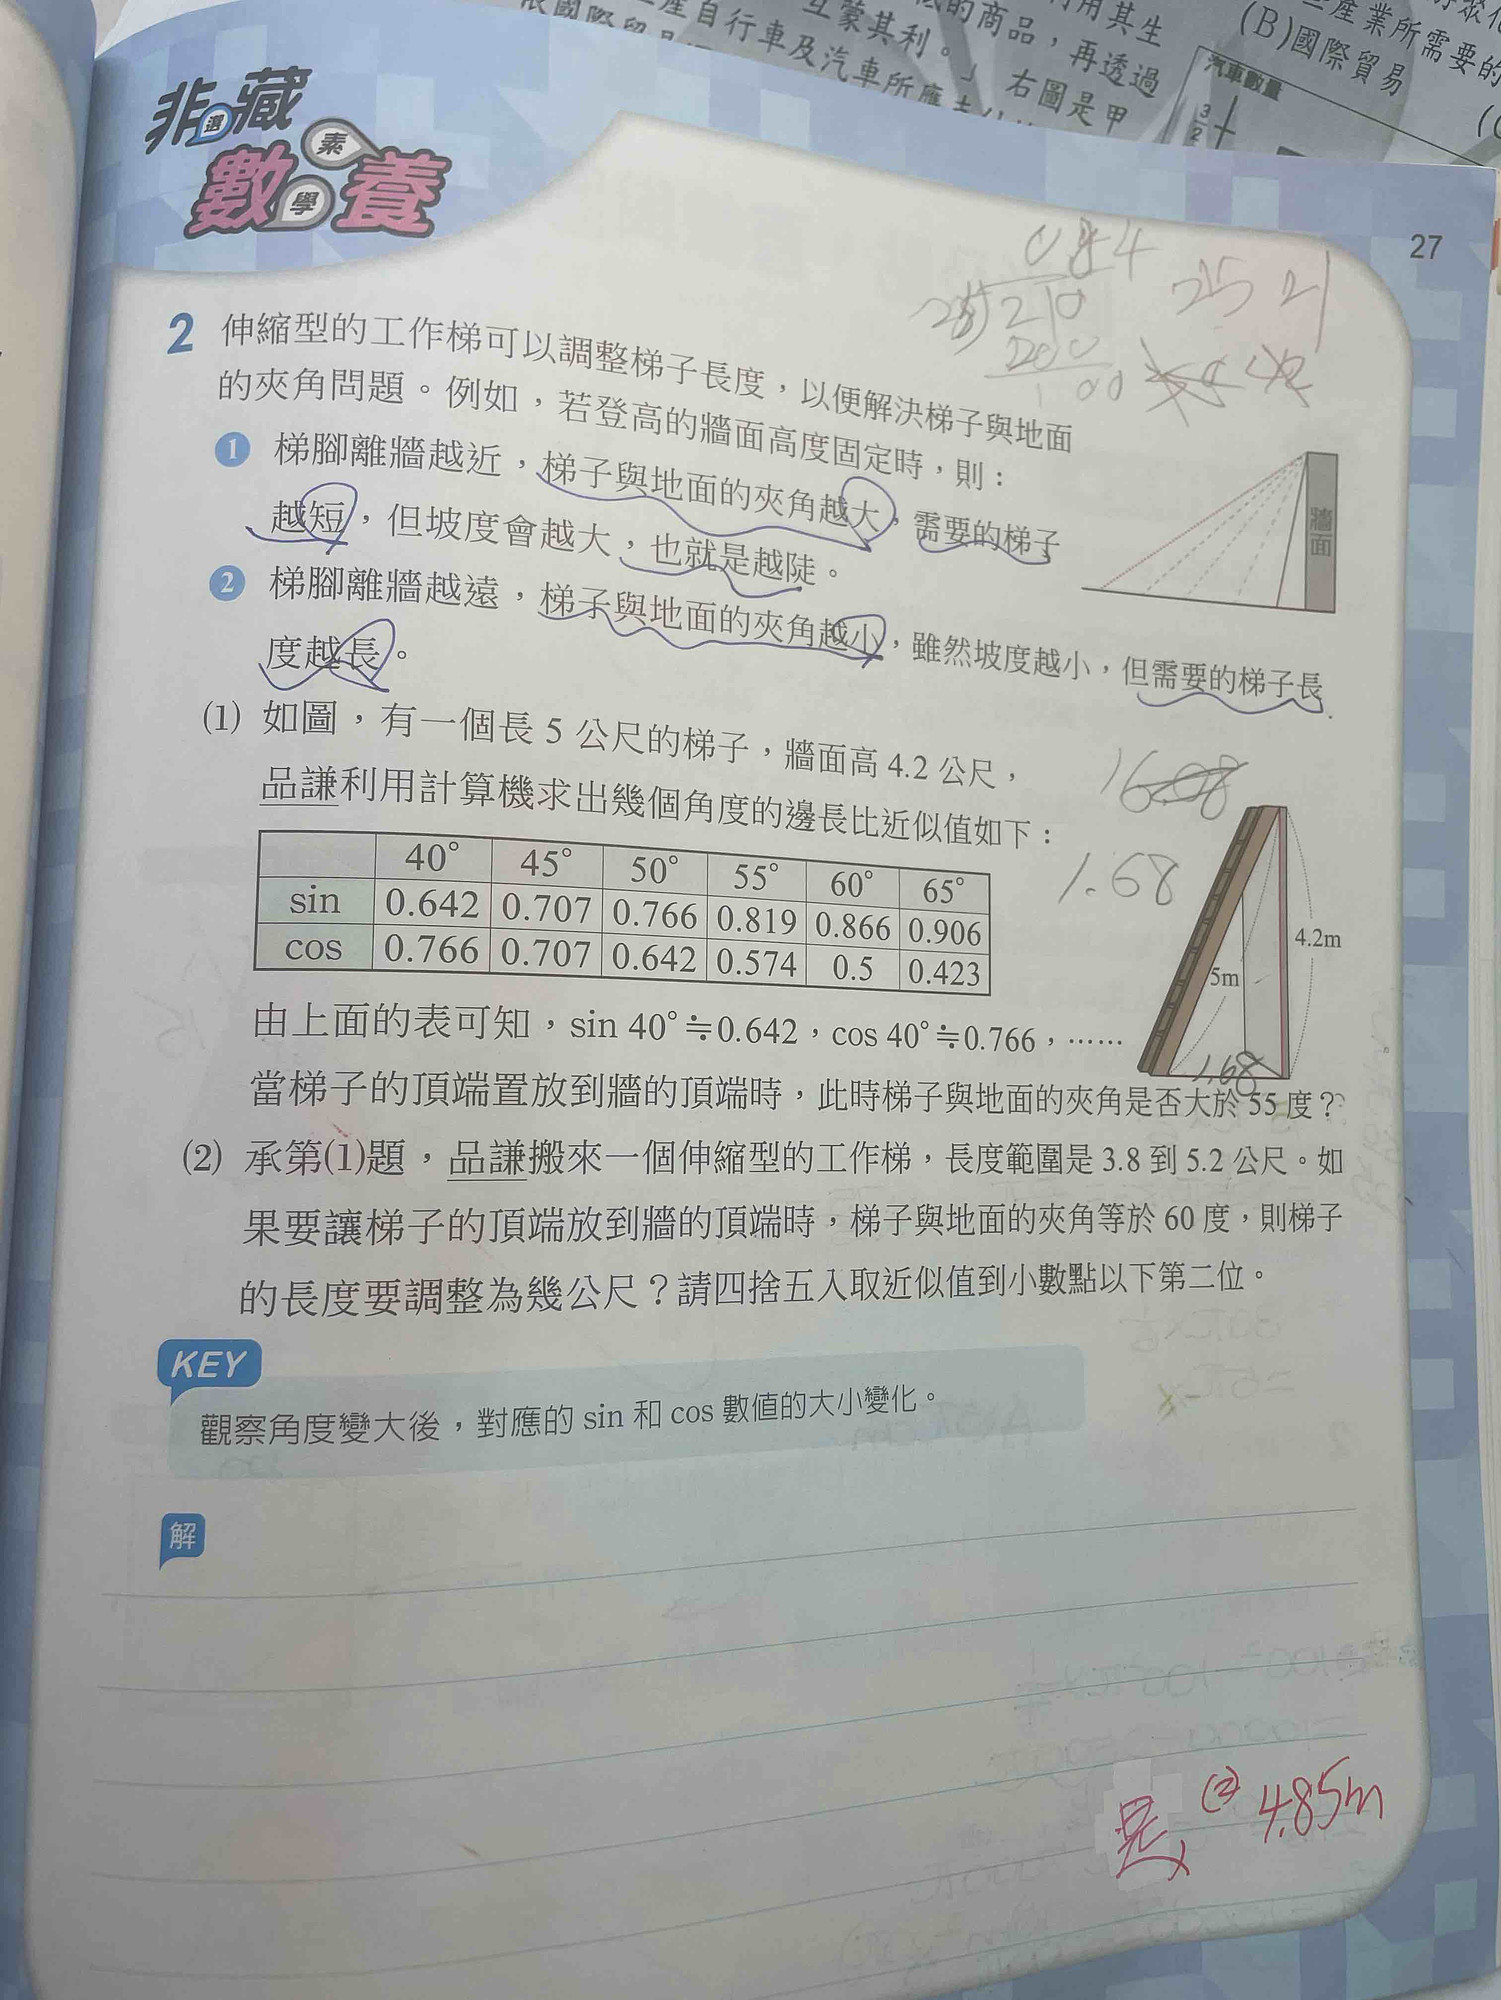 產自行車及汽車所應
互蒙其利。」右圖是甲
的商品，再透過
用其生
(B)國際貿易
產業所需要的
汽車數量
3
2
非選藏
數學素養
27
0.84
25 21
2 伸縮型的工作梯可以調整梯子長度，以便解決梯子與地面
的夾角問題。例如，若登高的牆面高度固定時，則：
1 梯腳離牆越近，梯子與地面的夾角越大，需要的梯子
越短，但坡度會越大，也就是越陡。
牆面
2 梯腳離牆越遠，梯子與地面的夾角越小，雖然坡度越小，但需要的梯子長
度越長。
(1) 如圖，有一個長 5 公尺的梯子，牆面高 4.2 公尺，
品謙利用計算機求出幾個角度的邊長比近似值如下：
40° 45° 50° 55° 60° 65°
sin 0.642 0.707 0.766 0.819 0.866 0.906
cos 0.766 0.707 0.642 0.574 0.5 0.423
1.68
4.2m
5m
1.68
由上面的表可知，sin 40°≒0.642，cos 40°≒0.766，……
當梯子的頂端置放到牆的頂端時，此時梯子與地面的夾角是否大於 55 度？
(2) 承第(1)題，品謙搬來一個伸縮型的工作梯，長度範圍是 3.8 到 5.2 公尺。如
果要讓梯子的頂端放到牆的頂端時，梯子與地面的夾角等於 60 度，則梯子
的長度要調整為幾公尺？請四捨五入取近似值到小數點以下第二位。
KEY
觀察角度變大後，對應的 sin 和 cos 數值的大小變化。
解
是 (2) 4.85m